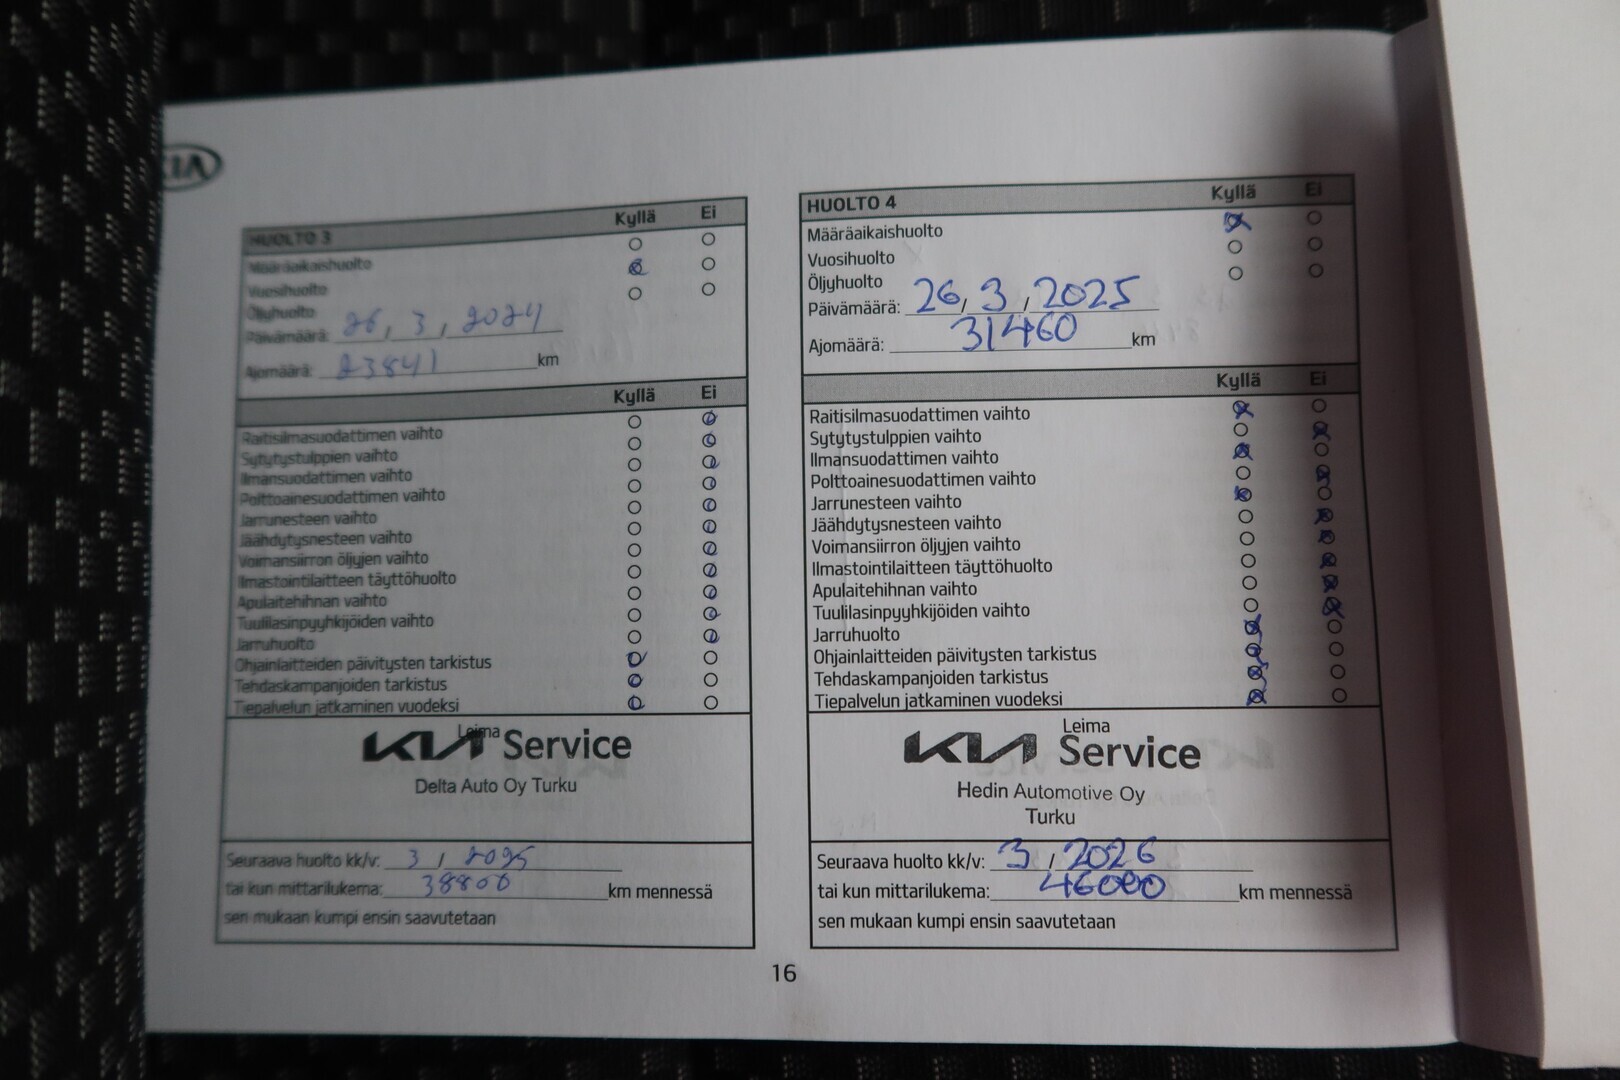 KIA
HUOLTO 3 Kyllä Ei
Määräaikaishuolto
Vuosihuolto
Öljyhuolto
Päivämäärä: 26, 3, 2024
Ajomäärä: 23841 km
Kyllä Ei
Raitisilmasuodattimen vaihto
Sytytystulppien vaihto
Ilmansuodattimen vaihto
Polttoainesuodattimen vaihto
Jarrunesteen vaihto
Jäähdytysnesteen vaihto
Voimansiirron öljyjen vaihto
Ilmastointilaitteen täyttöhuolto
Apulaitehihnan vaihto
Tuulilasinpyyhkijöiden vaihto
Jarruhuolto
Ohjainlaitteiden päivitysten tarkistus
Tehdaskampanjoiden tarkistus
Tiepalvelun jatkaminen vuodeksi
Leima
KIA Service
Delta Auto Oy Turku
Seuraava huolto kk/v: 3 / 2025
tai kun mittarilukema: 38800 km mennessä
sen mukaan kumpi ensin saavutetaan
HUOLTO 4 Kyllä Ei
Määräaikaishuolto
Vuosihuolto
Öljyhuolto
Päivämäärä: 26, 3, 2025
Ajomäärä: 31460 km
Kyllä Ei
Raitisilmasuodattimen vaihto
Sytytystulppien vaihto
Ilmansuodattimen vaihto
Polttoainesuodattimen vaihto
Jarrunesteen vaihto
Jäähdytysnesteen vaihto
Voimansiirron öljyjen vaihto
Ilmastointilaitteen täyttöhuolto
Apulaitehihnan vaihto
Tuulilasinpyyhkijöiden vaihto
Jarruhuolto
Ohjainlaitteiden päivitysten tarkistus
Tehdaskampanjoiden tarkistus
Tiepalvelun jatkaminen vuodeksi
Leima
KIA Service
Hedin Automotive Oy
Turku
Seuraava huolto kk/v: 3 / 2026
tai kun mittarilukema: 46000 km mennessä
sen mukaan kumpi ensin saavutetaan
16